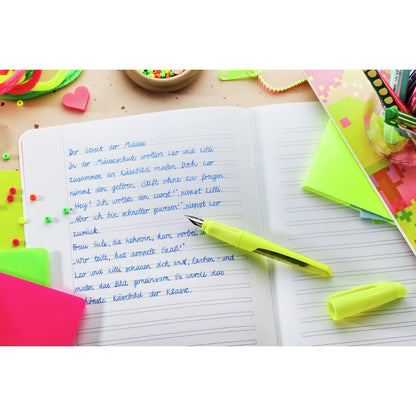 Der Streit der Mäuse
In der Mäuseschule wollten Leo und Lilli
zusammen ein Käsebild malen. Doch Leo
nimmt den gelben Stift ohne zu fragen.
„Hey! Ich wollte ihn zuerst!", piepst Lilli.
„Aber ich bin schneller gewesen!", piepst Leo
zurück.
Frau Sulz, die Lehrerin, kam vorbei
„Wer teilt, hat doppelt Spaß!"
Leo und Lilli schauen sich an, lachen - und
malen das Bild gemeinsam. Es wurde das
schönste Käsebild der Klasse.